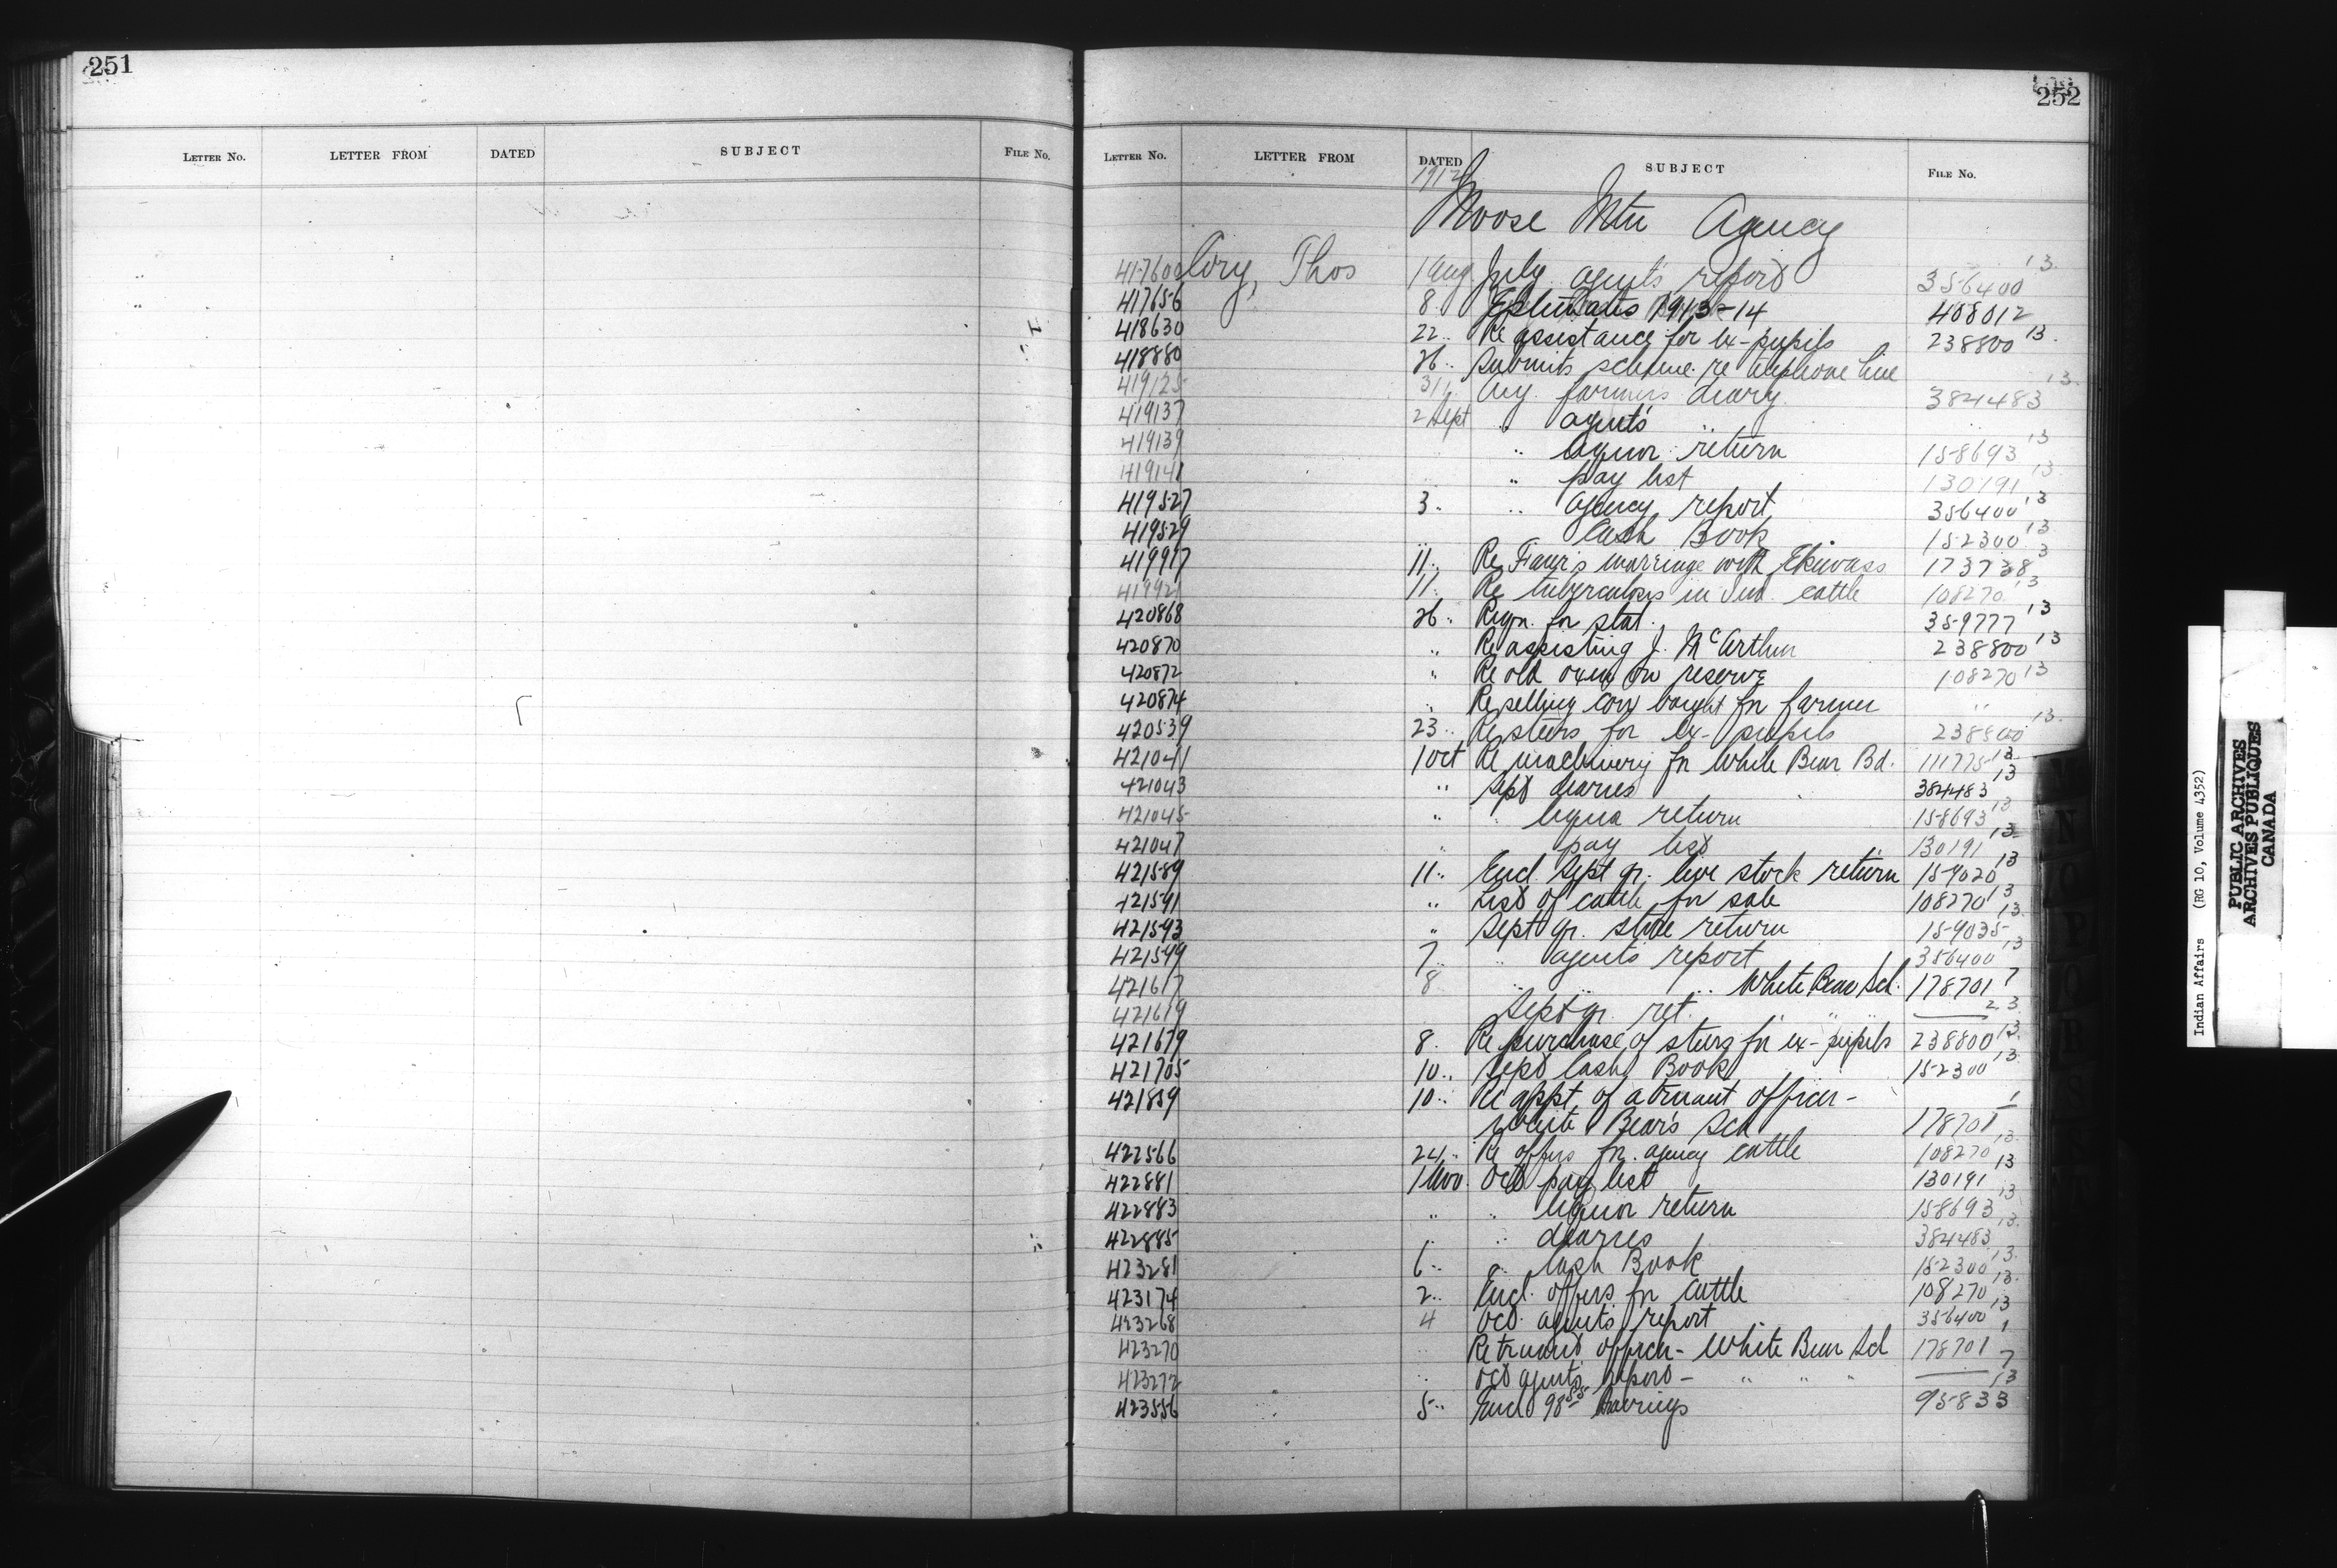 251
LETTER NO. LETTER FROM DATED SUBJECT FILE NO.
252
LETTER NO. LETTER FROM DATED SUBJECT FILE NO.
1912
Moose Mtn Agency
417600 Cory, Thos 1 Aug July agent's report 356400 13
417656 8 Estimates 1913-14 408012
418630 22 " Re assistance for ex-pupils 238800 13
418880 26 " Submits scheme re telephone line
419125 31 " Aug. farmers diary 384483 13
419137 2 Sept " agent's "
419139 " liquor return 158693 13
419141 " pay list 130191 13
419527 3 " " agency report 356400 13
419529 Cash Book 152300 13
419917 11 " Re marriage with 173738 3
419921 11 " Re tuberculosis in Ind. cattle 108270 13
420868 26 " Reqn. for stat. 359777 13
420870 " Re assisting J. McArthur 238800 13
420872 " Re old oxen on reserve 108270 13
420874 " Re selling cow bought for farmer "
420539 23 " Re steers for ex-pupils 238800 13
421041 1 Oct Re machinery for White Bear Bd. 111775 13
421043 " Sept diaries 384483 13
421045 " " liquor return 158693 13
421047 " pay list 130191 13
421589 11 " Encl. Sept qr. live stock return 159020 13
421591 " List of cattle for sale 108270 13
421593 " Sept qr. store return 159035 13
421599 7 " " agents report 356400 13
421617 8 " " White Bear Sch. 178701 7
421619 Sept qr. ret. " " " 23
421679 8 " Re purchase of steers for ex-pupils 238800 13
421705 10 " Sept Cash Book 152300 13
421859 10 " Re appt. of a truant officer -
White Bear's Sch 178701 1
422566 24 " Re offers for agency cattle 108270 13
422881 1 Nov Oct pay list 130191 13
422883 " " liquor return 158693 13
422885 " " diaries 384483 13
423281 6 " " Cash Book 152300 13
423174 2 " Encl. offers for cattle 108270 13
423268 4 Oct. agents report 356400 13
423270 " Re truant officer - White Bear Sch 178701 1
423272 " Oct agents report - " " " 7
423556 5 " Encl 98 55 Savings 95833 13
N O P Q R S T
Indian Affairs (RG 10, Volume 4352)
PUBLIC ARCHIVES
ARCHIVES PUBLIQUES
CANADA